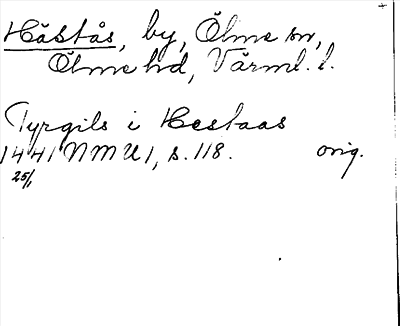 Hästås, by, Ölme sn,
Ölme hd, Värml. l.
Tyrgils i Hestaas
1441 NMU 1, s. 118. orig.
25/1